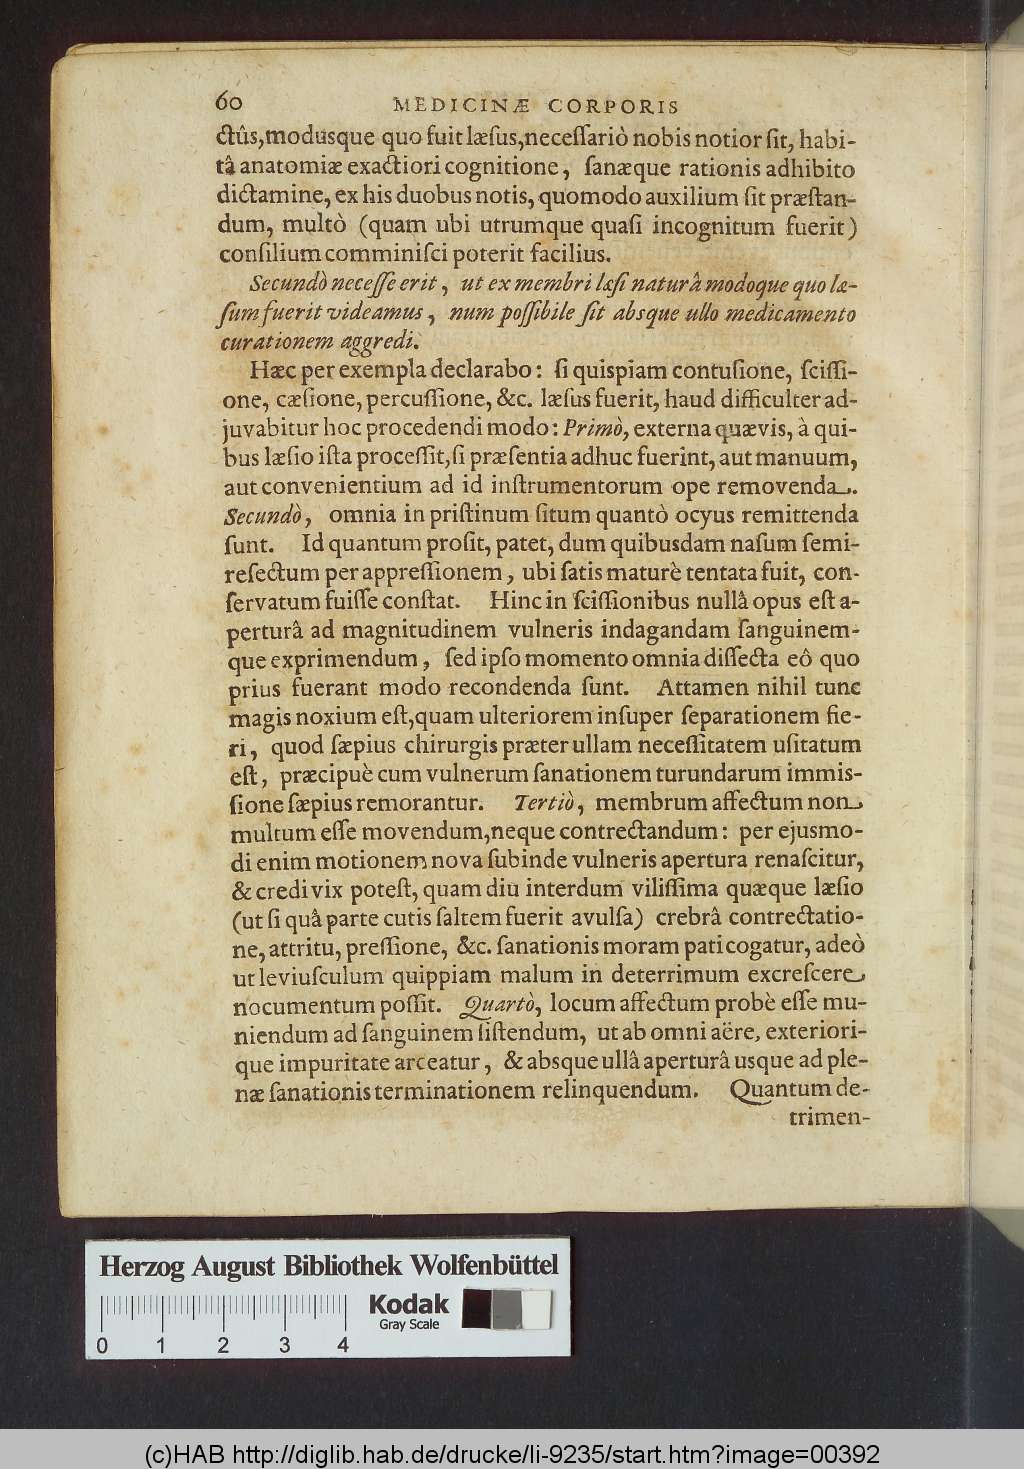 60 MEDICINÆ CORPORIS
ctûs,modusque quo fuit læſus,neceſſariò nobis notior ſit, habi-
tâ anatomiæ exactiori cognitione, ſanæque rationis adhibito
dictamine, ex his duobus notis, quomodo auxilium ſit præſtan-
dum, multò (quam ubi utrumque quaſi incognitum fuerit)
conſilium comminiſci poterit facilius.
Secundò neceſſe erit, ut ex membri læſi naturâ modoque quo læ-
ſum fuerit videamus, num poſſibile ſit absque ullo medicamento
curationem aggredi.
Hæc per exempla declarabo: ſi quispiam contuſione, ſciſſi-
one, cæſione, percuſſione, &c. læſus fuerit, haud difficulter ad-
juvabitur hoc procedendi modo: Primò, externa quævis, à qui-
bus læſio iſta proceſſit, ſi præſentia adhuc fuerint, aut manuum,
aut convenientium ad id inſtrumentorum ope removenda.
Secundò, omnia in priſtinum ſitum quantò ocyus remittenda
ſunt. Id quantum proſit, patet, dum quibusdam naſum ſemi-
reſectum per appreſſionem, ubi ſatis maturè tentata fuit, con-
ſervatum fuiſſe conſtat. Hinc in ſciſſionibus nullâ opus eſt a-
perturâ ad magnitudinem vulneris indagandam ſanguinem-
que exprimendum, ſed ipſo momento omnia diſſecta eô quo
prius fuerant modo recondenda ſunt. Attamen nihil tunc
magis noxium eſt,quam ulteriorem inſuper ſeparationem fie-
ri, quod ſæpius chirurgis præter ullam neceſſitatem uſitatum
eſt, præcipuè cum vulnerum ſanationem turundarum immis-
ſione ſæpius remorantur. Tertiò, membrum affectum non
multum eſſe movendum,neque contrectandum: per ejusmo-
di enim motionem nova ſubinde vulneris apertura renaſcitur,
& credi vix poteſt, quam diu interdum viliſſima quæque læſio
(ut ſi quâ parte cutis ſaltem fuerit avulſa) crebrâ contrectatio-
ne, attritu, preſſione, &c. ſanationis moram pati cogatur, adeò
ut leviuſculum quippiam malum in deterrimum excreſcere
nocumentum poſſit. Quartò, locum affectum probè eſſe mu-
niendum ad ſanguinem ſiſtendum, ut ab omni aëre, exteriori-
que impuritate arceatur, & absque ullâ aperturâ usque ad ple-
næ ſanationis terminationem relinquendum. Quantum de-
trimen-
Herzog August Bibliothek Wolfenbüttel
Kodak
Gray Scale
0 1 2 3 4
(c)HAB http://diglib.hab.de/drucke/li-9235/start.htm?image=00392